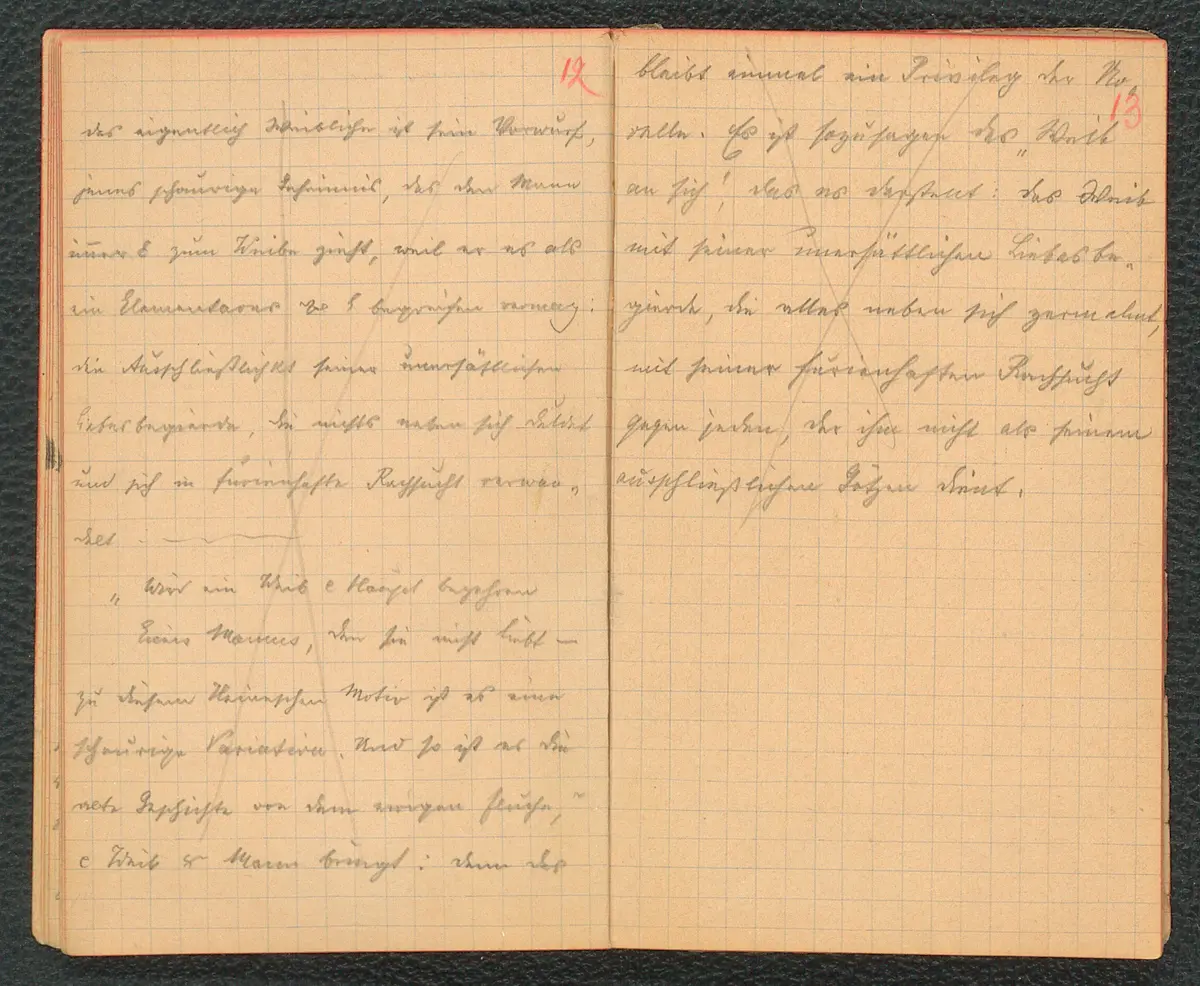 12
das eigentlich Weibliche ist sein Vorwurf,
jenes schaurige Geheimnis, das den Mann
immer zum Weibe zieht, weil er es als
ein Elementares begreifen vermag:
die Ausschließlichkt seiner unersättlichen
Liebesbegierde, die nichts neben sich duldet
und sich in furienhafte Rachsucht verwan„
delt. —
„Wird ein Weib e Haupt begehren
Eines Mannes, den sie nicht liebt —
zu diesem Heineschen Motiv ist es eine
schaurige Variation. Und so ist es die
alte Geschichte von dem ewigen Fluche,
e Weib Mann bringt: denn das
13
bleibt einmal ein Privileg der No„
velle. Es ist sozusagen das „Weib
an sich“, das es darstellt: das Weib
mit seiner unersättlichen Liebesbe„
gierde, die alles neben sich zermalmt,
mit seiner furienhaften Rachsucht
gegen jeden, der ihm nicht als seinem
ausschließlichen Götzen dient.